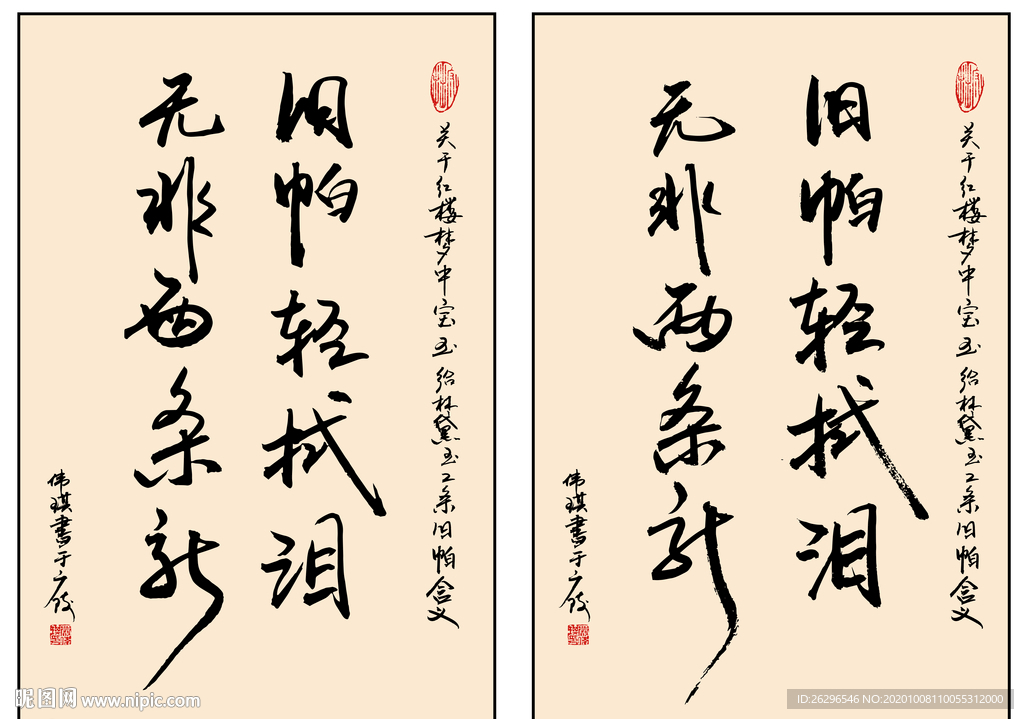 关于红楼梦中宝玉给林黛玉二条旧帕含义
旧帕轻拭泪
无非两条新
伟琪书于广饶
关于红楼梦中宝玉给林黛玉二条旧帕含义
旧帕轻拭泪
无非两条新
伟琪书于广饶
昵图网 www.nipic.com
ID:26296546 NO:20201008110055312000